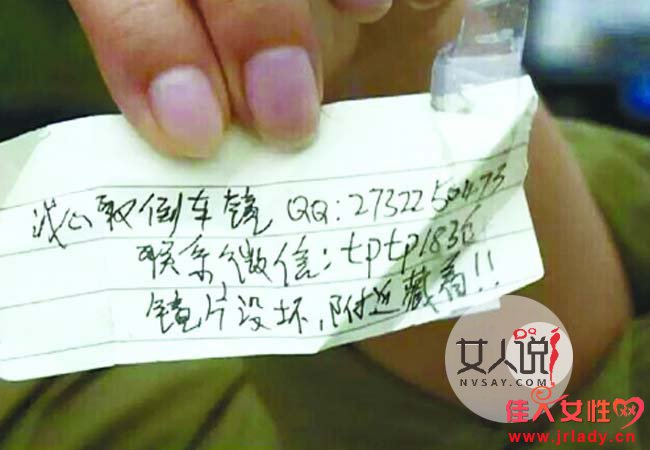 诚心取倒车镜 QQ:2732250475
联系微信:tptp1836
镜片没坏,附近藏着!!
女人说
NVSAY.COM
佳人女性网
www.jrlady.cn